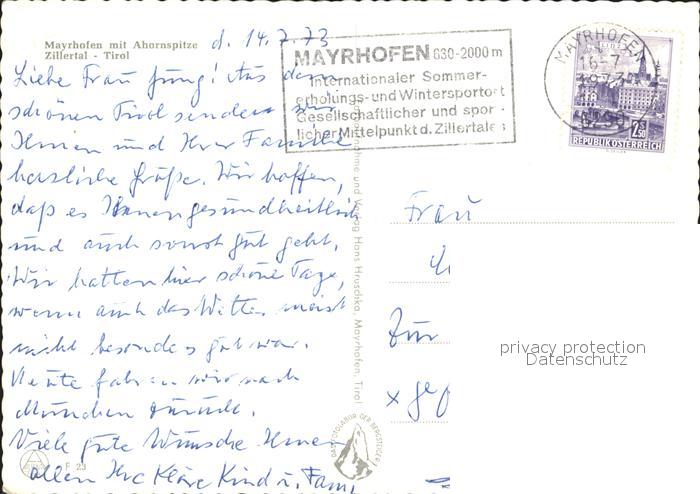 Mayrhofen mit Ahornspitze
Zillertal - Tirol
d. 14.7.73
Liebe Frau Jung! Aus dem
schönen Tirol senden wir
Ihnen und Ihrer Familie
herzliche Grüße. Wir hoffen,
daß es Ihnen gesundheitlich
und auch sonst gut geht.
Wir hatten hier schöne Tage,
wenn auch das Wetter meist
nicht besonders gut war.
Heute fahren wir nach
München zurück.
Viele gute Wünsche Ihnen
allen Ihre Kläre Kind u. Fam.
F 23
MAYRHOFEN 630-2000 m
Internationaler Sommer-
erholungs- und Wintersportort
Gesellschaftlicher und spor-
licher Mittelpunkt d. Zillertales
MAYRHOFEN
16-7
1973
6290
2.50
REPUBLIK ÖSTERREICH
und Verlag Hans Hruschka, Mayrhofen, Tirol
DAS FOTOLABOR DER BERGSTEIGER
Frau
Zur
privacy protection
Datenschutz